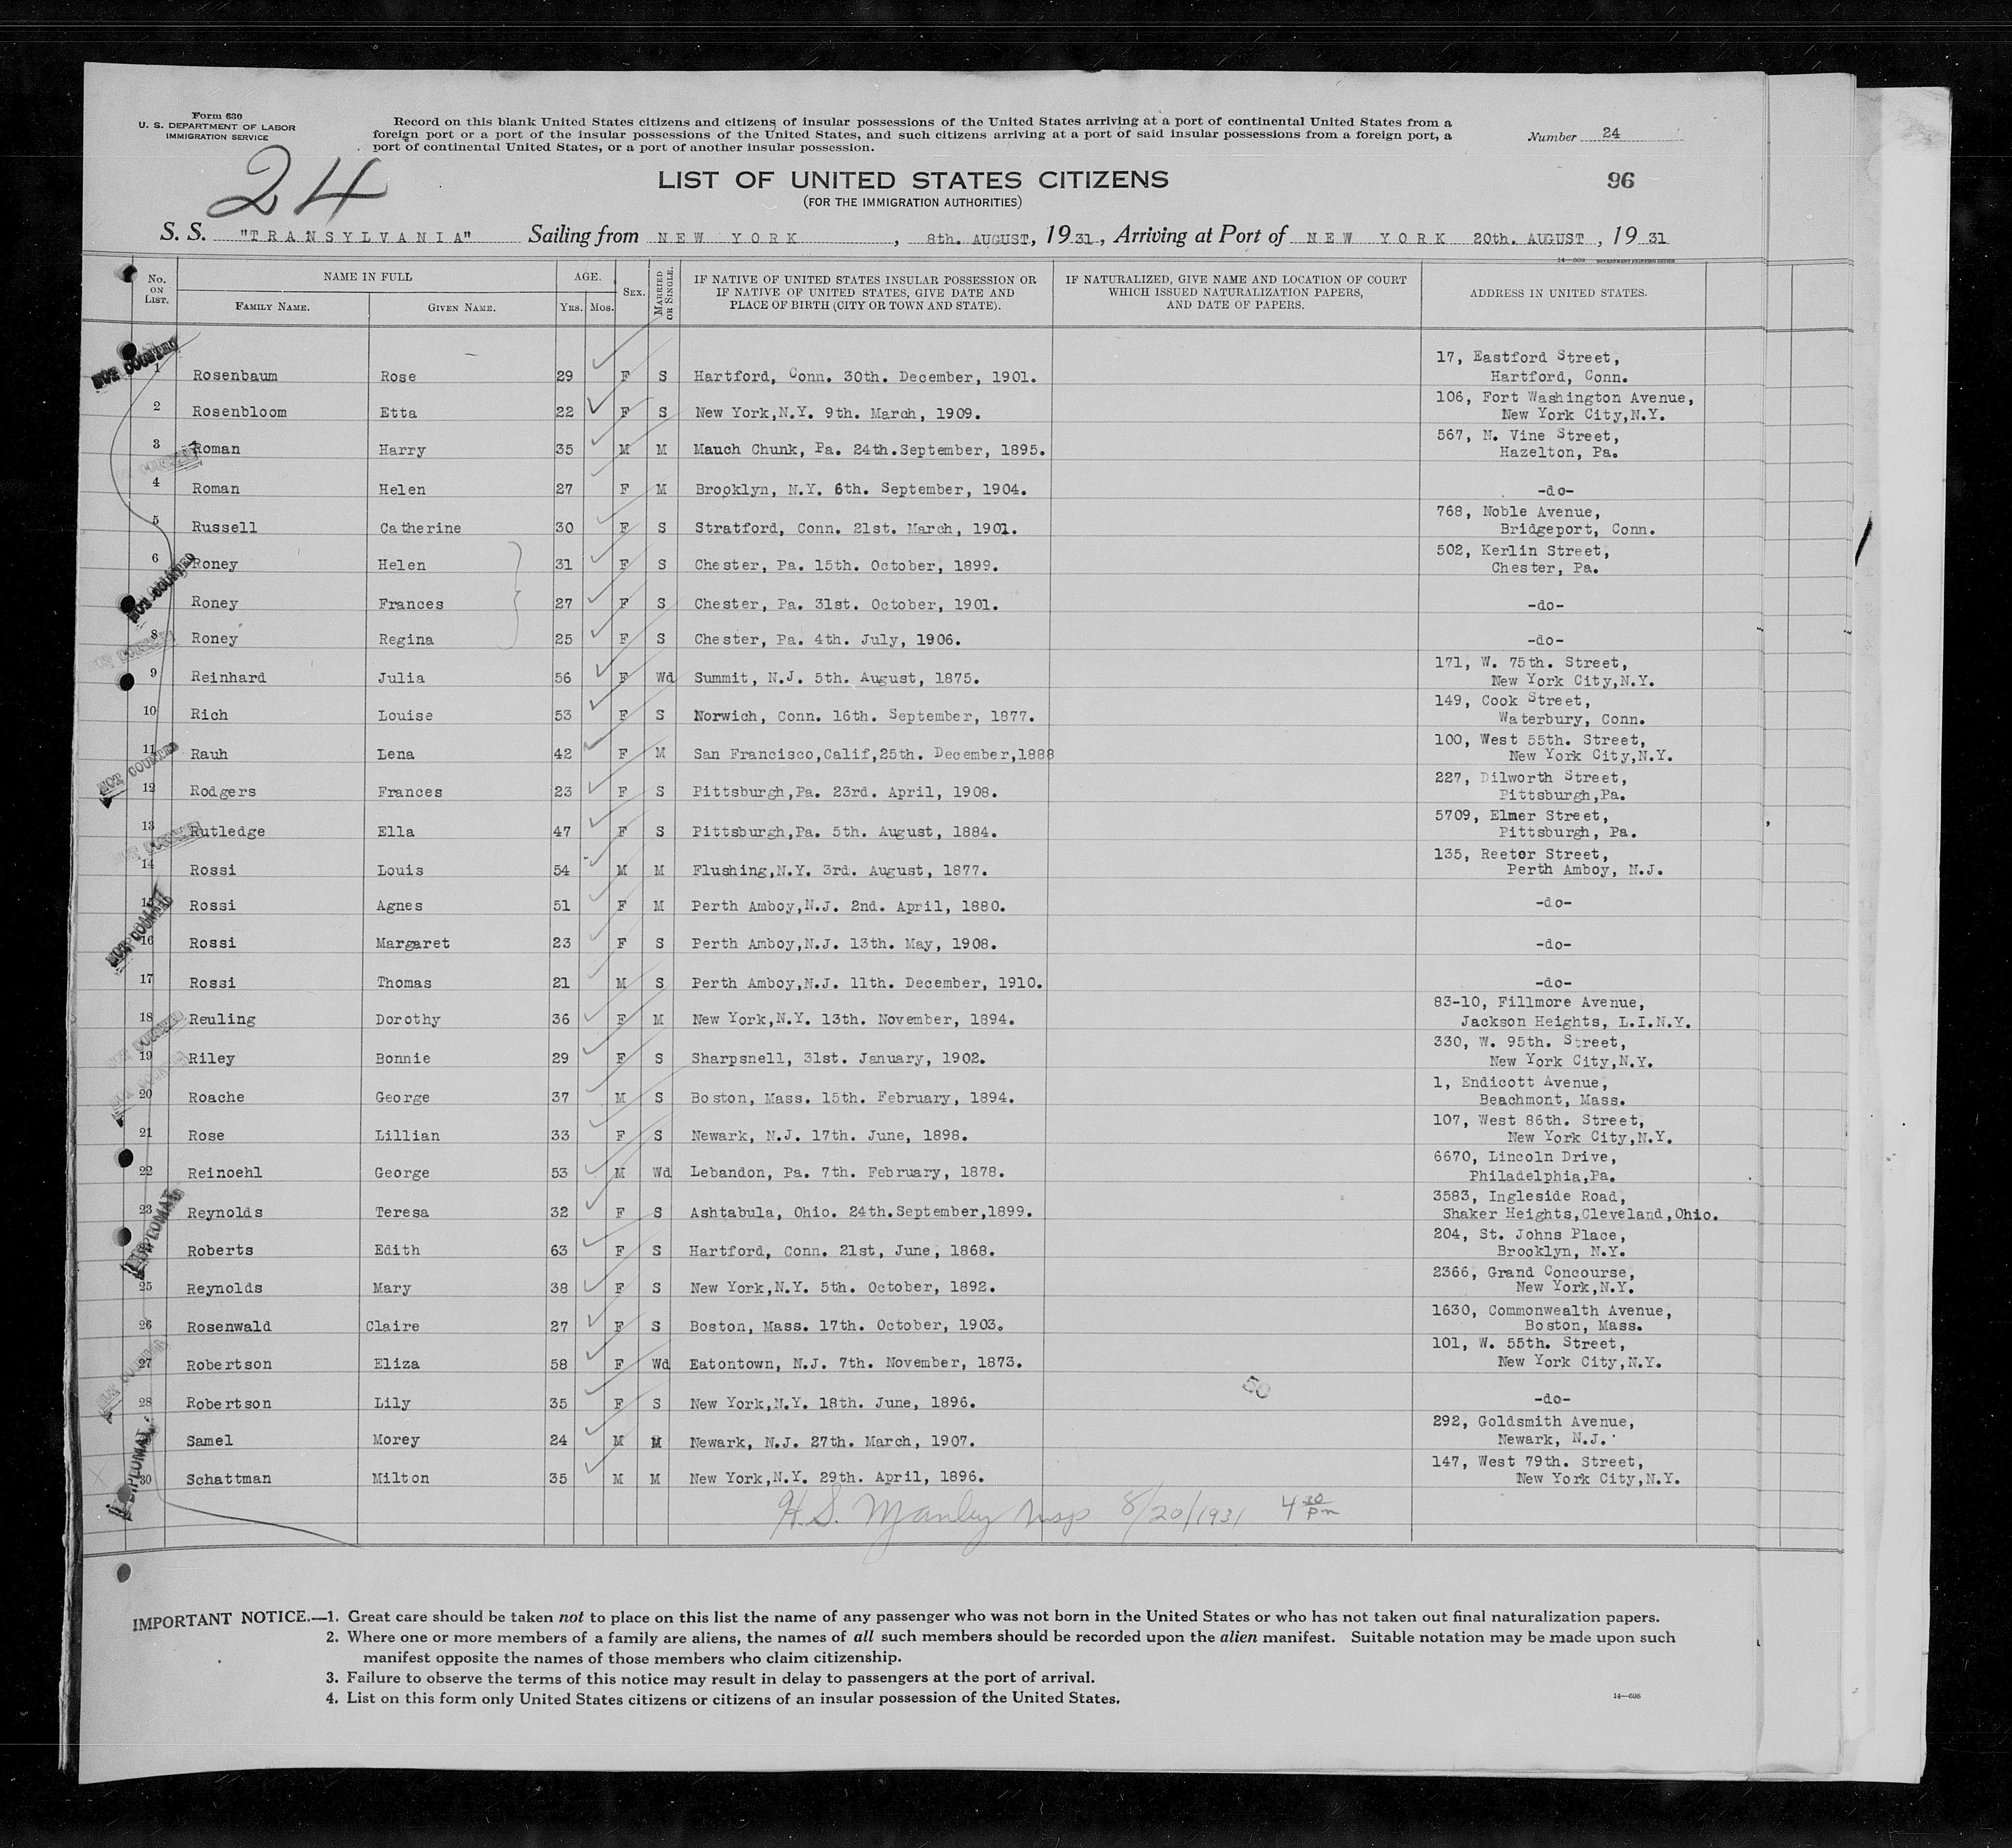 Form 630
U. S. DEPARTMENT OF LABOR
IMMIGRATION SERVICE
Record on this blank United States citizens and citizens of insular possessions of the United States arriving at a port of continental United States from a
foreign port or a port of the insular possessions of the United States, and such citizens arriving at a port of said insular possessions from a foreign port, a
port of continental United States, or a port of another insular possession.
Number 24
24
LIST OF UNITED STATES CITIZENS
(FOR THE IMMIGRATION AUTHORITIES)
96
S. S. "TRANSYLVANIA" Sailing from NEW YORK , 8th. AUGUST, 1931, Arriving at Port of NEW YORK 20th. AUGUST , 1931
No. ON LIST. NAME IN FULL FAMILY NAME. GIVEN NAME. AGE. YRS. MOS. SEX. MARRIED OR SINGLE. IF NATIVE OF UNITED STATES INSULAR POSSESSION OR IF NATIVE OF UNITED STATES, GIVE DATE AND PLACE OF BIRTH (CITY OR TOWN AND STATE). IF NATURALIZED, GIVE NAME AND LOCATION OF COURT WHICH ISSUED NATURALIZATION PAPERS, AND DATE OF PAPERS. ADDRESS IN UNITED STATES.
1 Rosenbaum Rose 29 F S Hartford, Conn. 30th. December, 1901. 17, Eastford Street, Hartford, Conn.
2 Rosenbloom Etta 22 F S New York,N.Y. 9th. March, 1909. 106, Fort Washington Avenue, New York City,N.Y.
3 Roman Harry 35 M M Mauch Chunk, Pa. 24th.September, 1895. 567, N. Vine Street, Hazelton, Pa.
4 Roman Helen 27 F M Brooklyn, N.Y. 6th. September, 1904. -do-
5 Russell Catherine 30 F S Stratford, Conn. 21st. March, 1901. 768, Noble Avenue, Bridgeport, Conn.
6 Roney Helen 31 F S Chester, Pa. 15th. October, 1899. 502, Kerlin Street, Chester, Pa.
Roney Frances 27 F S Chester, Pa. 31st. October, 1901. -do-
8 Roney Regina 25 F S Chester, Pa. 4th. July, 1906. -do-
9 Reinhard Julia 56 F Wd Summit, N.J. 5th. August, 1875. 171, W. 75th. Street, New York City,N.Y.
10 Rich Louise 53 F S Norwich, Conn. 16th. September, 1877. 149, Cook Street, Waterbury, Conn.
11 Rauh Lena 42 F M San Francisco,Calif,25th. December,1888 100, West 55th. Street, New York City,N.Y.
12 Rodgers Frances 23 F S Pittsburgh,Pa. 23rd. April, 1908. 227, Dilworth Street, Pittsburgh,Pa.
13 Rutledge Ella 47 F S Pittsburgh,Pa. 5th. August, 1884. 5709, Elmer Street, Pittsburgh, Pa.
14 Rossi Louis 54 M M Flushing,N.Y. 3rd. August, 1877. 135, Reetor Street, Perth Amboy, N.J.
15 Rossi Agnes 51 F M Perth Amboy,N.J. 2nd. April, 1880. -do-
16 Rossi Margaret 23 F S Perth Amboy,N.J. 13th. May, 1908. -do-
17 Rossi Thomas 21 M S Perth Amboy,N.J. 11th. December, 1910. -do-
18 Reuling Dorothy 36 F M New York,N.Y. 13th. November, 1894. 83-10, Fillmore Avenue, Jackson Heights, L.I.N.Y.
19 Riley Bonnie 29 F S Sharpsnell, 31st. January, 1902. 330, W. 95th. Street, New York City,N.Y.
20 Roache George 37 M S Boston, Mass. 15th. February, 1894. 1, Endicott Avenue, Beachmont, Mass.
21 Rose Lillian 33 F S Newark, N.J. 17th. June, 1898. 107, West 86th. Street, New York City,N.Y.
22 Reinoehl George 53 M Wd Lebandon, Pa. 7th. February, 1878. 6670, Lincoln Drive, Philadelphia,Pa.
23 Reynolds Teresa 32 F S Ashtabula, Ohio. 24th.September,1899. 3583, Ingleside Road, Shaker Heights,Cleveland,Ohio.
Roberts Edith 63 F S Hartford, Conn. 21st, June, 1868. 204, St. Johns Place, Brooklyn, N.Y.
25 Reynolds Mary 38 F S New York,N.Y. 5th. October, 1892. 2366, Grand Concourse, New York,N.Y.
26 Rosenwald Claire 27 F S Boston, Mass. 17th. October, 1903. 1630, Commonwealth Avenue, Boston, Mass.
27 Robertson Eliza 58 F Wd Eatontown, N.J. 7th. November, 1873. 101, W. 55th. Street, New York City,N.Y.
28 Robertson Lily 35 F S New York,N.Y. 18th. June, 1896. -do-
Samel Morey 24 M M Newark, N.J. 27th. March, 1907. 292, Goldsmith Avenue, Newark, N.J.
30 Schattman Milton 35 M M New York,N.Y. 29th. April, 1896. 147, West 79th. Street, New York City,N.Y.
H. S. Manley Insp 8/20/1931 4 30 pm
IMPORTANT NOTICE.—1. Great care should be taken not to place on this list the name of any passenger who was not born in the United States or who has not taken out final naturalization papers.
2. Where one or more members of a family are aliens, the names of all such members should be recorded upon the alien manifest. Suitable notation may be made upon such
manifest opposite the names of those members who claim citizenship.
3. Failure to observe the terms of this notice may result in delay to passengers at the port of arrival.
4. List on this form only United States citizens or citizens of an insular possession of the United States.
14—606